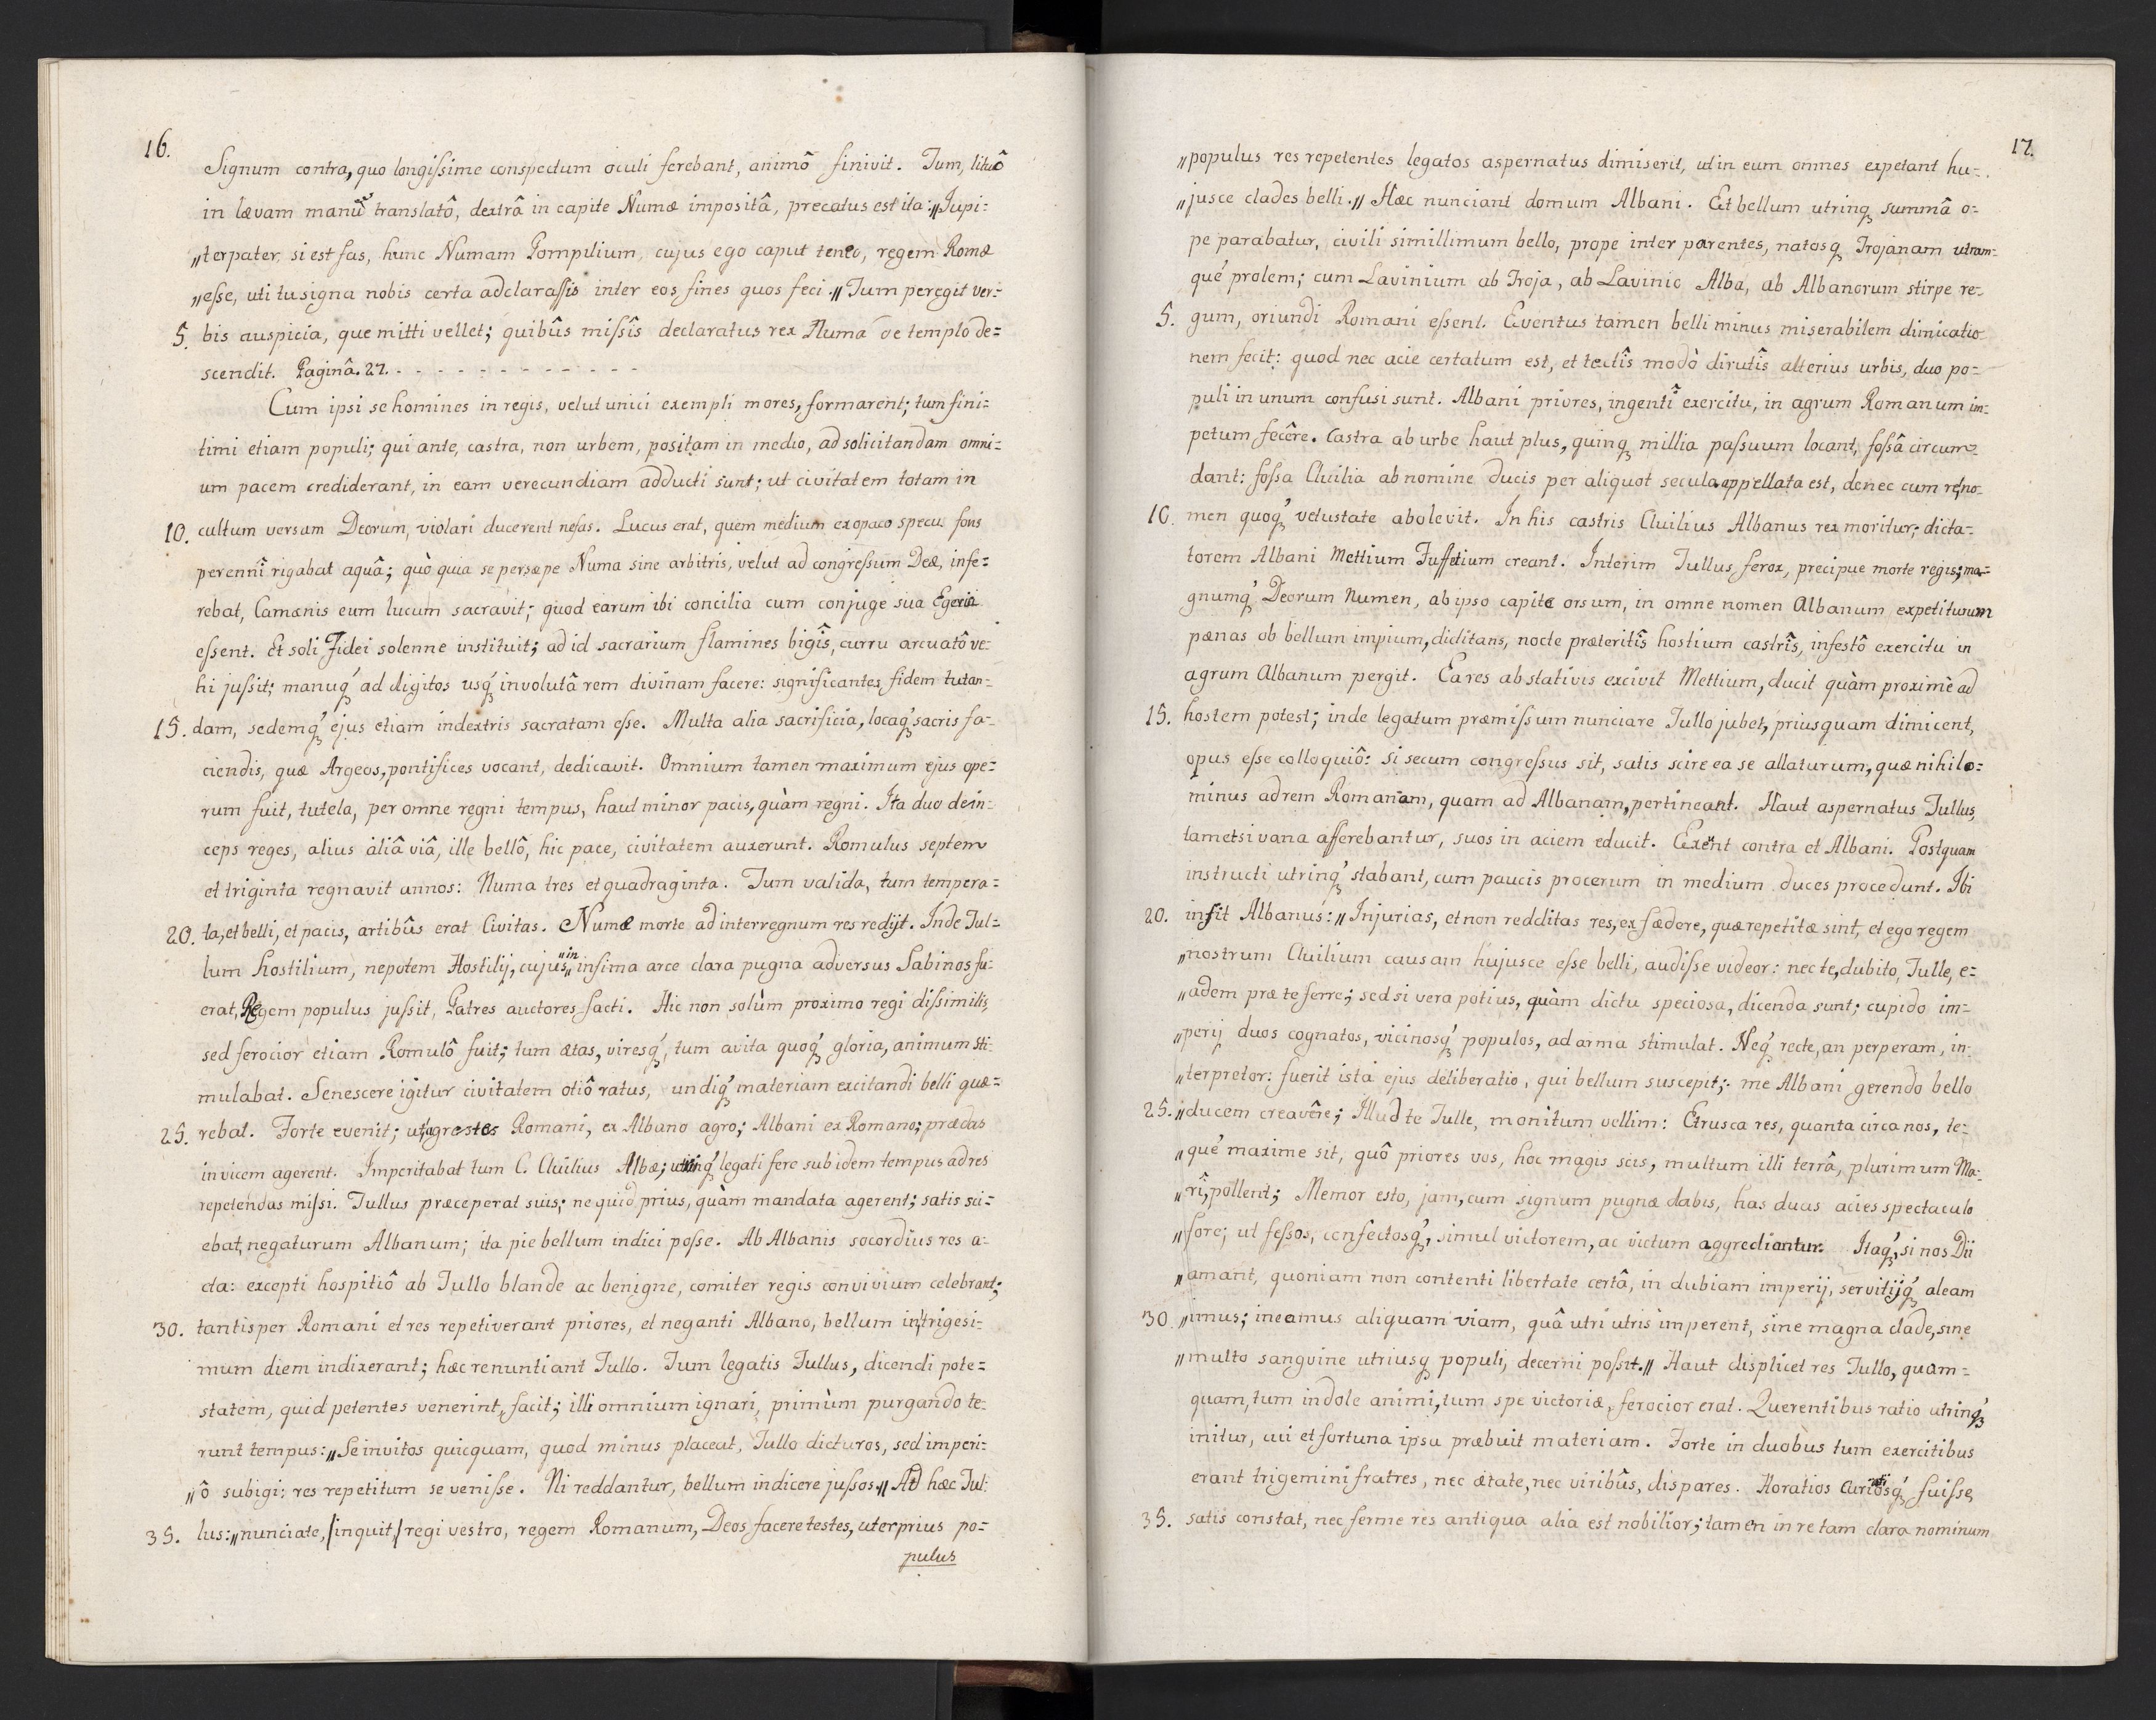 16.
Signum contra, quo longiſsime conspectum oculi ferebant, animô finivit. Tum, lituô
in lævam manū translatô, dextrâ in capite Numæ impositâ, precatus est ita: „Jupi=
„terpater, si est fas, hunc Numam Pompilium, cujus ego caput teneo, regem Romæ
„eſse, uti tu signa nobis certa adclaraſsis inter eos fines quos feci.„ Tum peregit ver=
5. bis auspicia, que mitti vellet; quibûs miſsîs declaratus rex Numa de templo de=
scendit. Paginâ. 27. - - - - - - - - - - - - -
Cum ipsi se homines in regis, velut unici exempli mores, formarent; tum fini=
timi etiam populi; qui ante, castra, non urbem, positam in medio, ad solicitandam omni=
um pacem crediderant, in eam verecundiam adducti sunt; ut civitatem totam in
10. cultum versam Deorum, violari ducerent nefas. Lucus erat, quem medium ex opaco specu fons
perennî rigabat aquâ; quò quia se persæpe Numa sine arbitris, velut ad congreſsum Deæ, infe=
rebat, Camænis eum lucum sacravit; quod earum ibi concilia cum conjuge sua Egeria
eſsent. Et soli Fidei solenne instituit; ad id sacrarium flamines bigîs, curru arcuatô ve=
hi juſsit; manuq́ꝫ ad digitos usq́ꝫ involutâ rem divinam facere: significantes fidem tutan=
15. dam, sedemq́ꝫ ejus etiam in dextris sacratam eſse. Multa alia sacrificia, locaq́ꝫ sacris fa=
ciendis, quæ Argeos, pontifices vocant, dedicavit. Omnium tamen maximum ejus ope=
rum fuit, tutela, per omne regni tempus, haut minor pacis, quàm regni. Ita duo dein=
ceps reges, alius aliâ viâ, ille bellô, hic pace, civitatem auxerunt. Romulus septem
et triginta regnavit annos: Numa tres et quadraginta. Tum valida, tum tempera=
20. ta, et belli, et pacis, artibûs erat Civitas. Numæ morte ad interregnum res redijt. Inde Tul=
lum Hostilium, nepotem Hostilij, cujus „in„ infima arce clara pugna adversus Sabinos fu=
erat, Regem populus juſsit, Patres auctores facti. Hic non solùm proximo regi diſsimilis,
sed ferocior etiam Romulô fuit; tum ætas, viresq́ꝫ, tum avita quoq́ꝫ gloria, animum sti=
mulabat. Senescere igitur civitatem otiô ratus, undiq́ꝫ materiam excitandi belli quæ=
25. rebat. Forte evenit; ut agrestes Romani, ex Albano agro; Albani ex Romano; prædas
invicem agerent. Imperitabat tum C. Cluilius Albæ; utrinq́ꝫ legati fere sub idem tempus ad res
repetendas miſsi. Tullus præceperat suis; ne quid prius, quàm mandata agerent; satis sci=
ebat, negaturum Albanum; ita pie bellum indici poſse. Ab Albanis socordius res a=
cta: excepti hospitiô ab Tullo blande ac benigne, comiter regis convivium celebrant;
30. tantisper Romani et res repetiverant priores, et neganti Albano, bellum in trigesi=
mum diem indixerant; hæc renuntiant Tullo. Tum legatis Tullus, dicendi pote=
statem, quid petentes venerint, facit; illi omnium ignari, primùm purgando te=
runt tempus: „Se invitos quicquam, quod minus placeat, Tullo dicturos, sed imperi=
„ô subigi; res repetitum se veniſse. Ni reddantur, bellum indicere juſsos.„ Ad hæc Tul:
35. lus: „nunciate, /inquit,/ regi vestro, regem Romanum, Deos facere testes, uter prius po=
pulus
17.
„populus res repetentes legatos aspernatus dimiserit, ut in eum omnes expetant hu=
„jusce clades belli.„ Hæc nunciant domum Albani. Et bellum utrinqꝫ summâ o=
pe parabatur, civili simillimum bello, prope inter parentes, natosqꝫ Trojanam utram=
qué prolem; cum Lavinium ab Troja, ab Lavinio Alba, ab Albanorum stirpe re=
5. gum, oriundi Romani eſsent. Eventus tamen belli minus miserabilem dimicatio
nem fecit: quod nec acie certatum est, et tectîs modò dirutîs alterius urbis, duo po=
puli in unum confusi sunt. Albani priores, ingentî exercitu, in agrum Romanum im=
petum fecêre. Castra ab urbe haut plus, quinqꝫ millia paſsuum locant, foſsâ circum=
dant: foſsa Cluilia ab nomine ducis per aliquot secula appellata est, donec cum re, no=
10. men quoq́ꝫ vetustate abolevit. In his castris Cluilius Albanus rex moritur; dicta=
torem Albani Mettium Fuffetium creant. Interim Tullus ferox, precipue morte regis; ma=
gnumq́ꝫ Deorum Numen, ab ipso capite orsum, in omne nomen Albanum expetiturum
pænas ob bellum impium, dictitans, nocte præteritîs hostium castrîs, infestô exercitu in
agrum Albanum pergit. Ea res ab stativis excivit Mettium, ducit quàm proximè ad
15. hostem potest; inde legatum præmiſsum nunciare Tullo jubet, priusquam dimicent,
opus eſse colloquiô: si secum congreſsus sit, satis scire ea se allaturum, quæ nihilo=
minus ad rem Romanam, quam ad Albanam, pertineant. Haut aspernatus Tullus,
tametsi vana afferebantur, suos in aciem educit. Exeunt contra et Albani. Postquam
instructi utrinq́ꝫ stabant, cum paucis procerum in medium duces procedunt. Ibi
20. infit Albanus: „Injurias, et non redditas res, ex fædere, quæ repetitæ sint, et ego regem
„nostrum Cluilium causam hujusce eſse belli, audiſse videor: nec te, dubito, Tulle, e=
„adem præ te ferre; sed si vera potius, quàm dictu speciosa, dicenda sunt; cupido im=
„perij duos cognatos, vicinosq́ꝫ populos, ad arma stimulat. Neq́ꝫ recte, an perperam, in=
„terpretor: fuerit ista ejus deliberatio, qui bellum suscepit; me Albani gerendo bello
25. „ducem creavêre; Illud te Tulle, monitum vellim: Etrusca res, quanta circa nos, te=
„qué maxime sit, quô priores vos, hoc magis scis, multum illi terrâ, plurimum Ma=
„rî, pollent; Memor esto, jam, cum signum pugnæ dabis, has duas acies spectaculo
„fore; ut feſsos, confectosq́ꝫ, simul victorem, ac victum aggrediantur. Itaq́ꝫ, si nos Dii
„amant, quoniam non contenti libertate certâ, in dubiam imperij, servitijq́ꝫ aleam
30. „imus; ineamus aliquam viam, quâ utri utris imperent, sine magna clade, sine
„multo sanguine utriusqꝫ populi, decerni poſsit.„ Haut displicet res Tullo, quam=
quam, tum indole animi, tum spe victoriæ, ferocior erat. Querentibus ratio utrinq́ꝫ
initur, cui et fortuna ipsa præbuit materiam. Forte in duobus tum exercitibus
erant trigemini fratres, nec ætate, nec viribûs, dispares. Horatios Curiatiosq́ꝫ fuiſse,
35. satis constat, nec ferme res antiqua alia est nobilior; tamen in re tam clara nominum